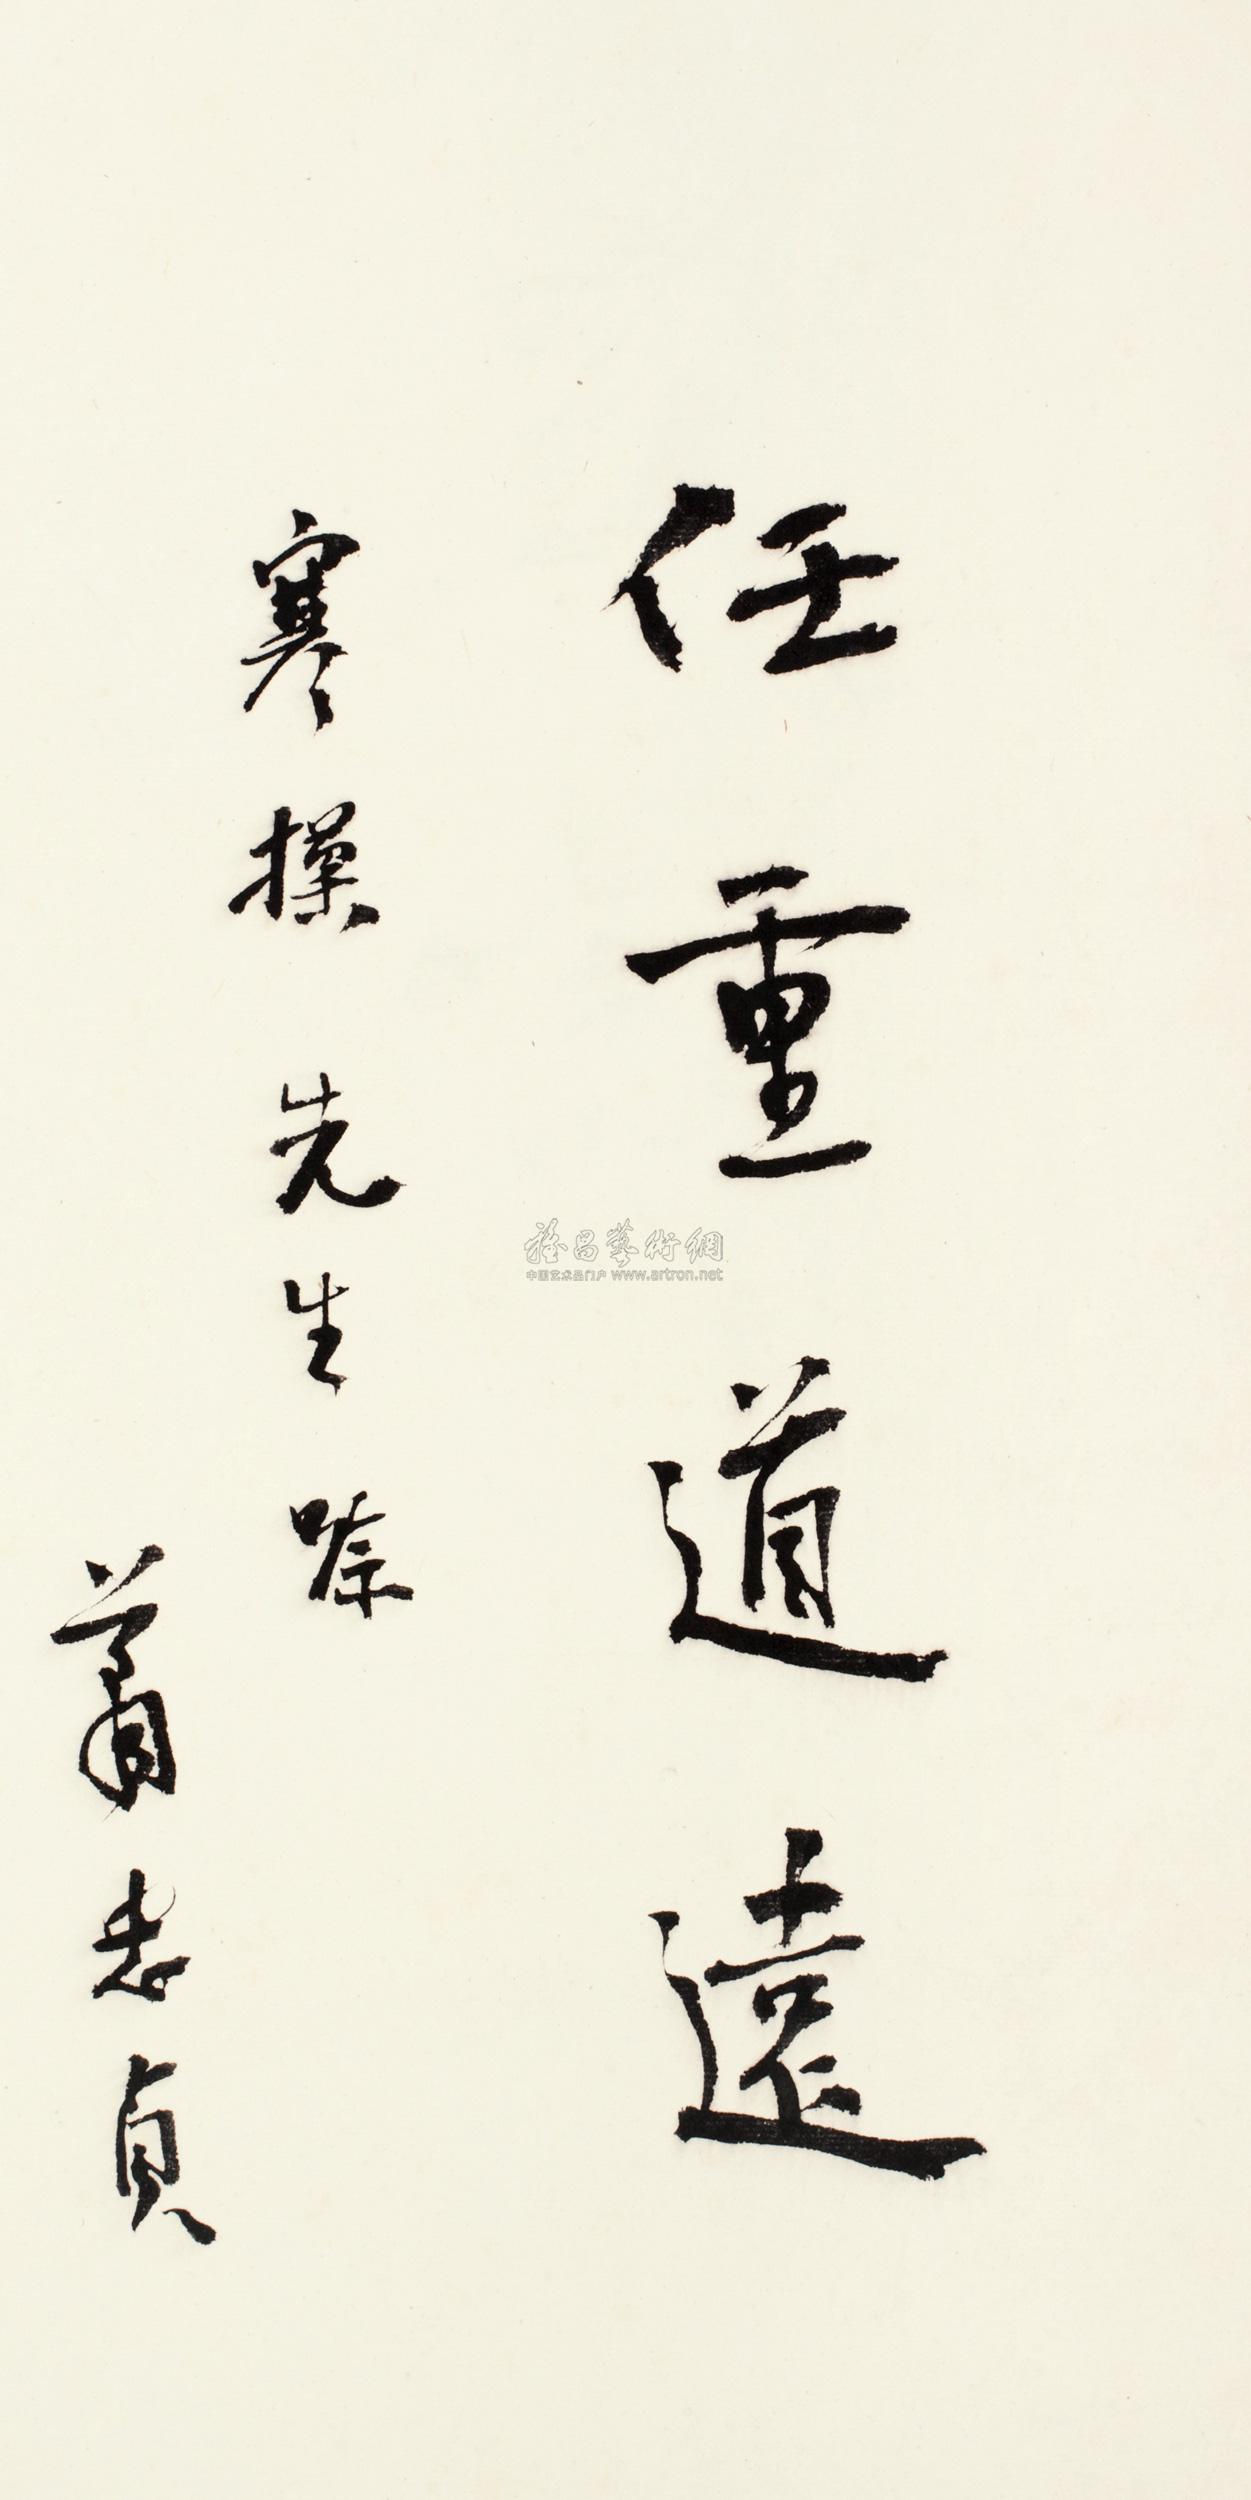 任重道遠
寒操先生嚓
蕭忠貞
雅昌藝術網
中国艺术品门户 www.artron.net